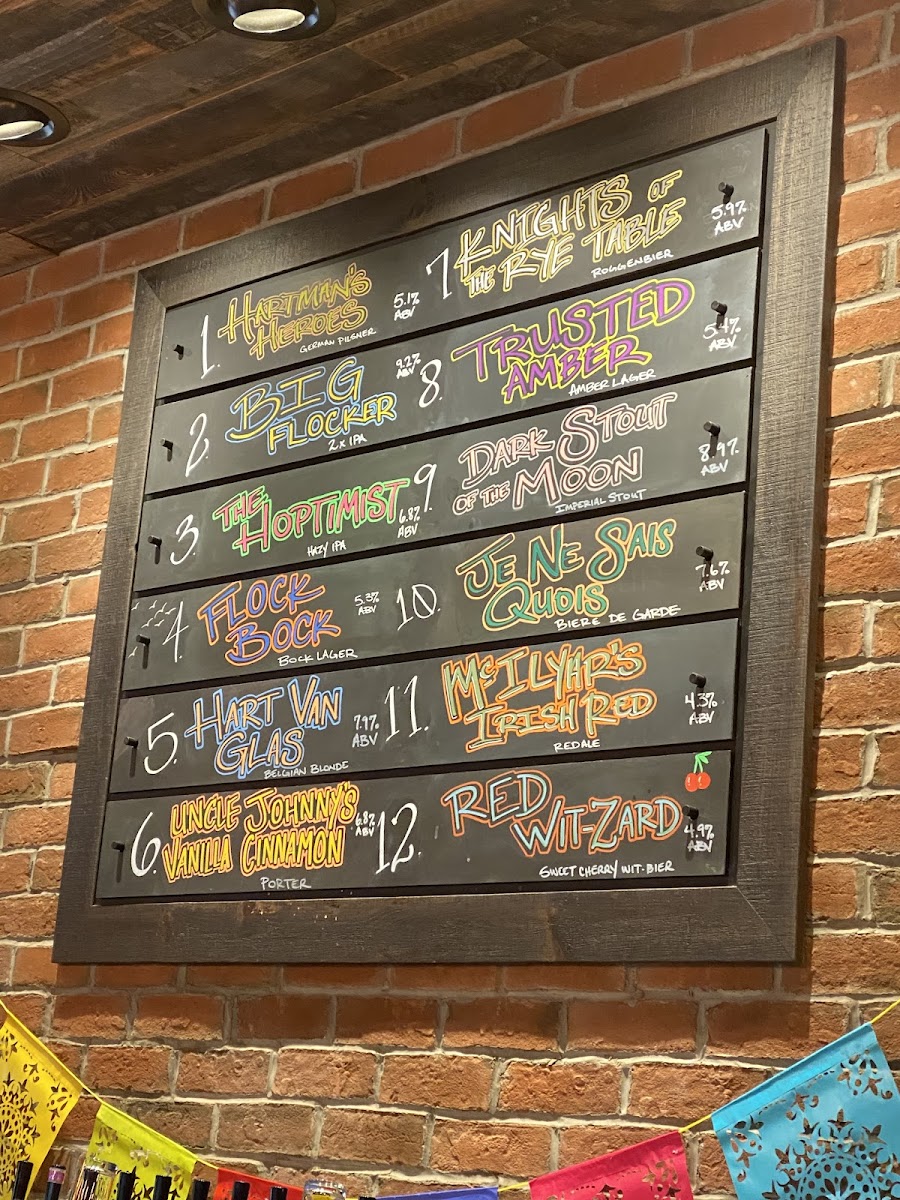 1. HARTMAN'S
HEROES
GERMAN PILSNER
5.1%
ABV
2. BIG
FLOCKER
2x IPA
9.2%
ABV
3. THE
HOPTIMIST
HAZY IPA
6.8%
ABV
4. FLOCK
BOCK
BOCK LAGER
5.3%
ABV
5. HART VAN
GLAS
BELGIAN BLONDE
7.9%
ABV
6. UNCLE JOHNNY'S
VANILLA CINNAMON
PORTER
6.8%
ABV
7. KNIGHTS OF
THE RYE TABLE
ROGGENBIER
5.9%
ABV
8. TRUSTED
AMBER
AMBER LAGER
5.4%
ABV
9. DARK STOUT
OF THE MOON
IMPERIAL STOUT
8.9%
ABV
10. JE NE SAIS
QUOIS
BIERE DE GARDE
7.6%
ABV
11. McILYAR'S
IRISH RED
RED ALE
4.3%
ABV
12. RED
WIT-ZARD
SWEET CHERRY WIT-BIER
4.9%
ABV